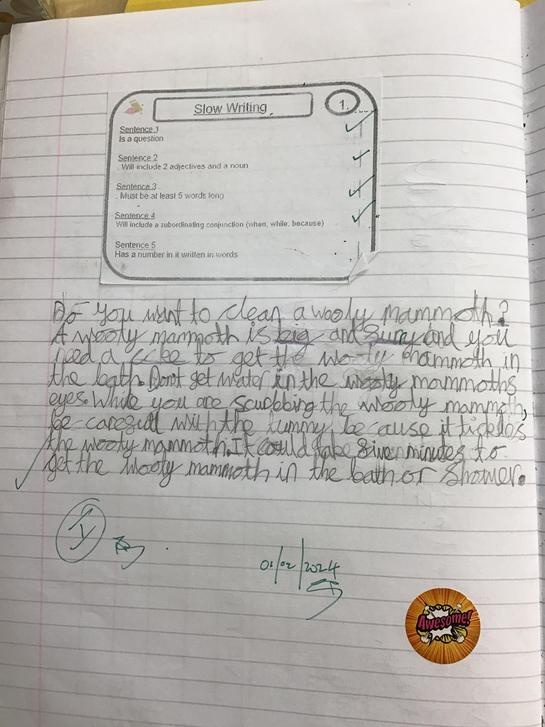 Slow Writing
1.
Sentence 1
Is a question
Sentence 2
. Will include 2 adjectives and a noun
Sentence 3
. Must be at least 5 words long
Sentence 4
Will include a subordinating conjunction (when, while, because)
Sentence 5
Has a number in it written in words
Do you want to clean a wooly mammoth?
A wooly mammoth is big and and you
need a to get the wooly mammoth in
the bath. Dont get water in the wooly mammoths
eyes. While you are scrubbing the wooly mammoth,
be carefull with the tummy because it tickles
the wooly mammoth. It could take minutes to
get the wooly mammoth in the bath or shower.
01/02/2024
Awesome!